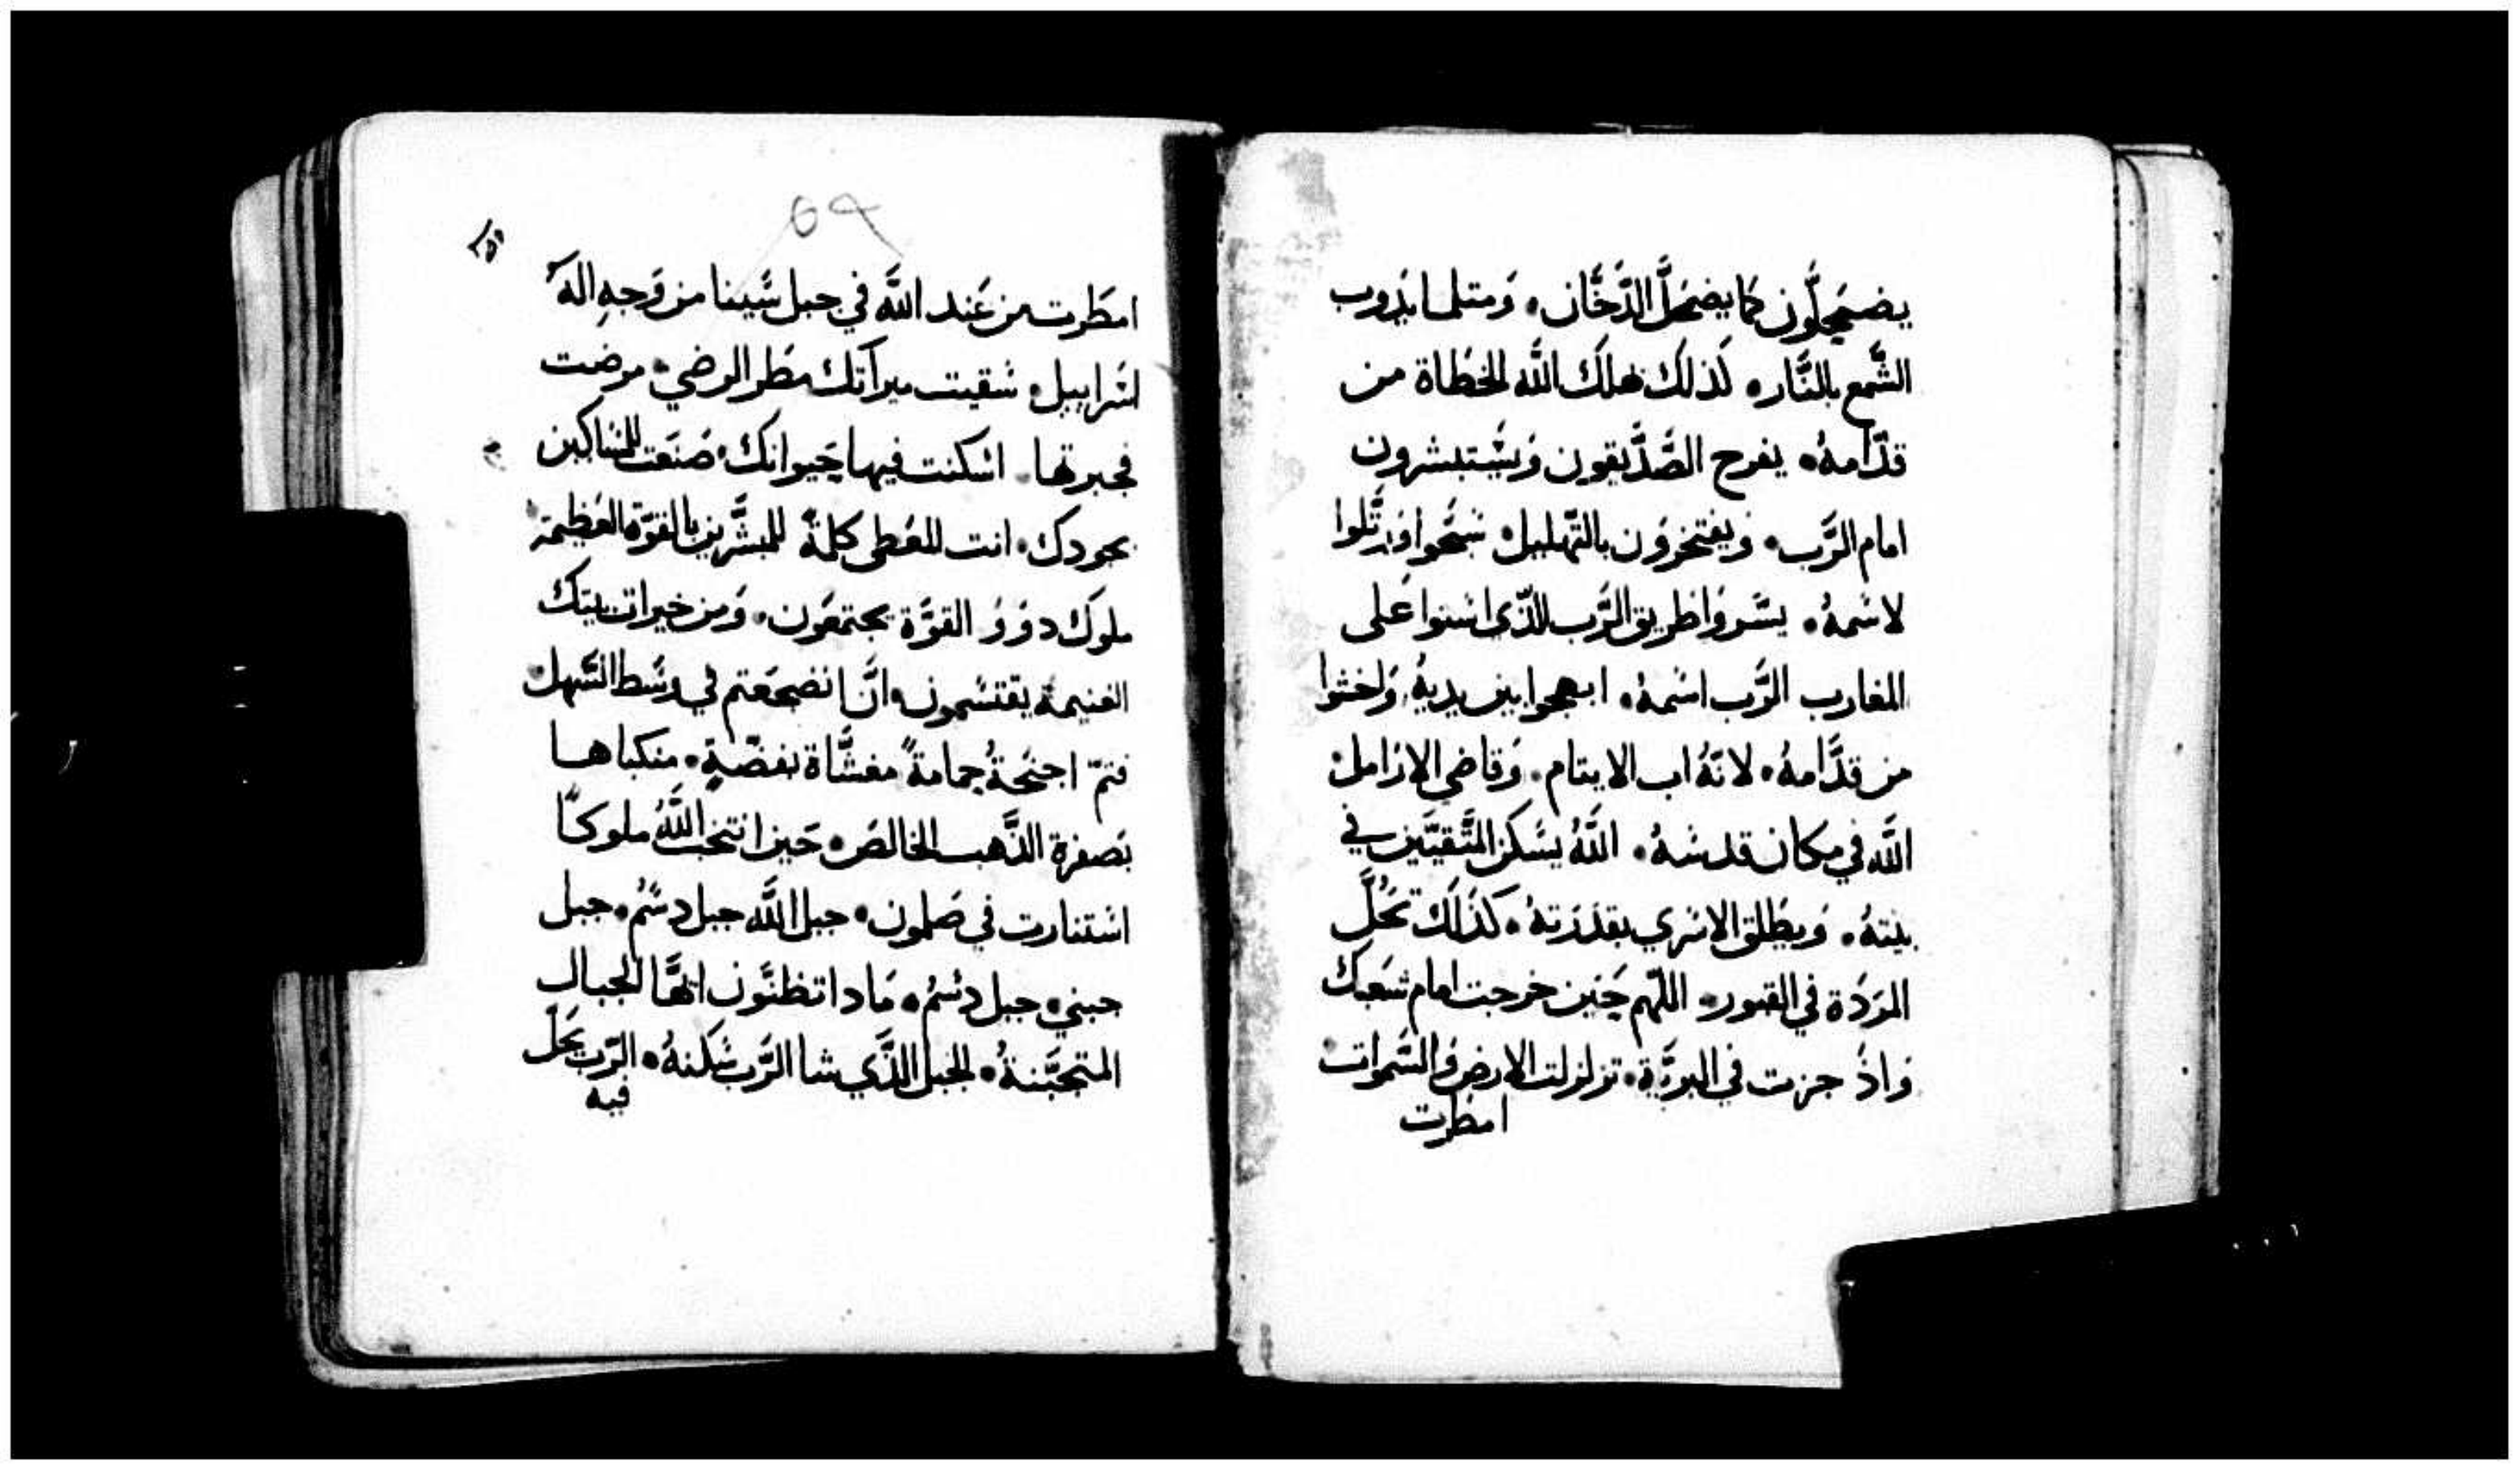 يضمحلّون كما يضمحلّ الدّخّان. ومتلما يدوب
الشّمع بالنّار. كذلك تهلك اللّه الخطاة من
قدّامهُ. يفرح الصّدّيقون ويستبشرون
امام الرّب. ويفتخرون بالتّهليل. سبّحوا ورتّلوا
لاسمهُ. يسّروا طريق الرّب للّذى استوا على
المغارب الرّب اسمهُ. ابهجوا بين يديهُ. واخشوا
من قدّامهُ. لانّهُ اب الايتام. وقاضى الارامل
اللّه في مكان قدسهُ. اللّهُ يسكن المتّقيّين في
بيتهُ. ويطلق الاسرى بقدرتهُ. كذلك تحُلّ
المردة في القبور. اللّهم حين خرجت امام شعبك
واذ جزت في البرّيّة. تزلزلت الارض والسّموات
امطرت
69
امطرت من عند اللّه في جبل سينا من وجهِ اله
اسراييل. سقيت ميرآتك مطر الرضي. مرضت
فجبرتها. اسكنت فيها حيوانك. صنعت للمساكين
بجودك. انت للعُطى كلمةً للمبشّرين بالقوّة العظيمة
ملوك دوو القوّة يجتمعون. ومن خيرات بيتك
الغنيمة يقتسمون. ان انضجعتم في وسط السّهل
فتمّ اجنحةُ حمامةً مغشّاة بفضّةٍ. منكباها
بصفرة الذّهب الخالص. حين انتخب اللّهُ ملوكًا
استنارت في صلمون. جبل اللّه جبل دسُم. جبل
جبني. جبل دسُم. مادا تظنّون ايّها الجبال
المتجبّنةُ. الجبل الذّي شا الرّب سكنهُ. الرّب يحَلّ
فيه